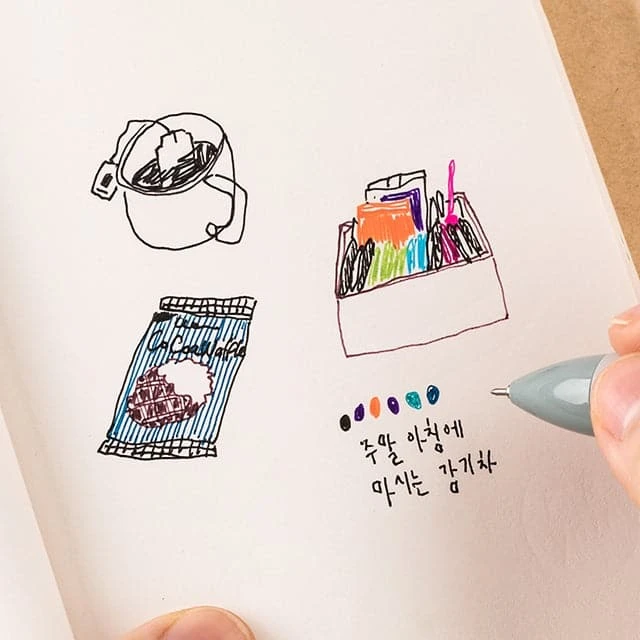 CoCoaWaffle
주말 아침에
마시는 감기차